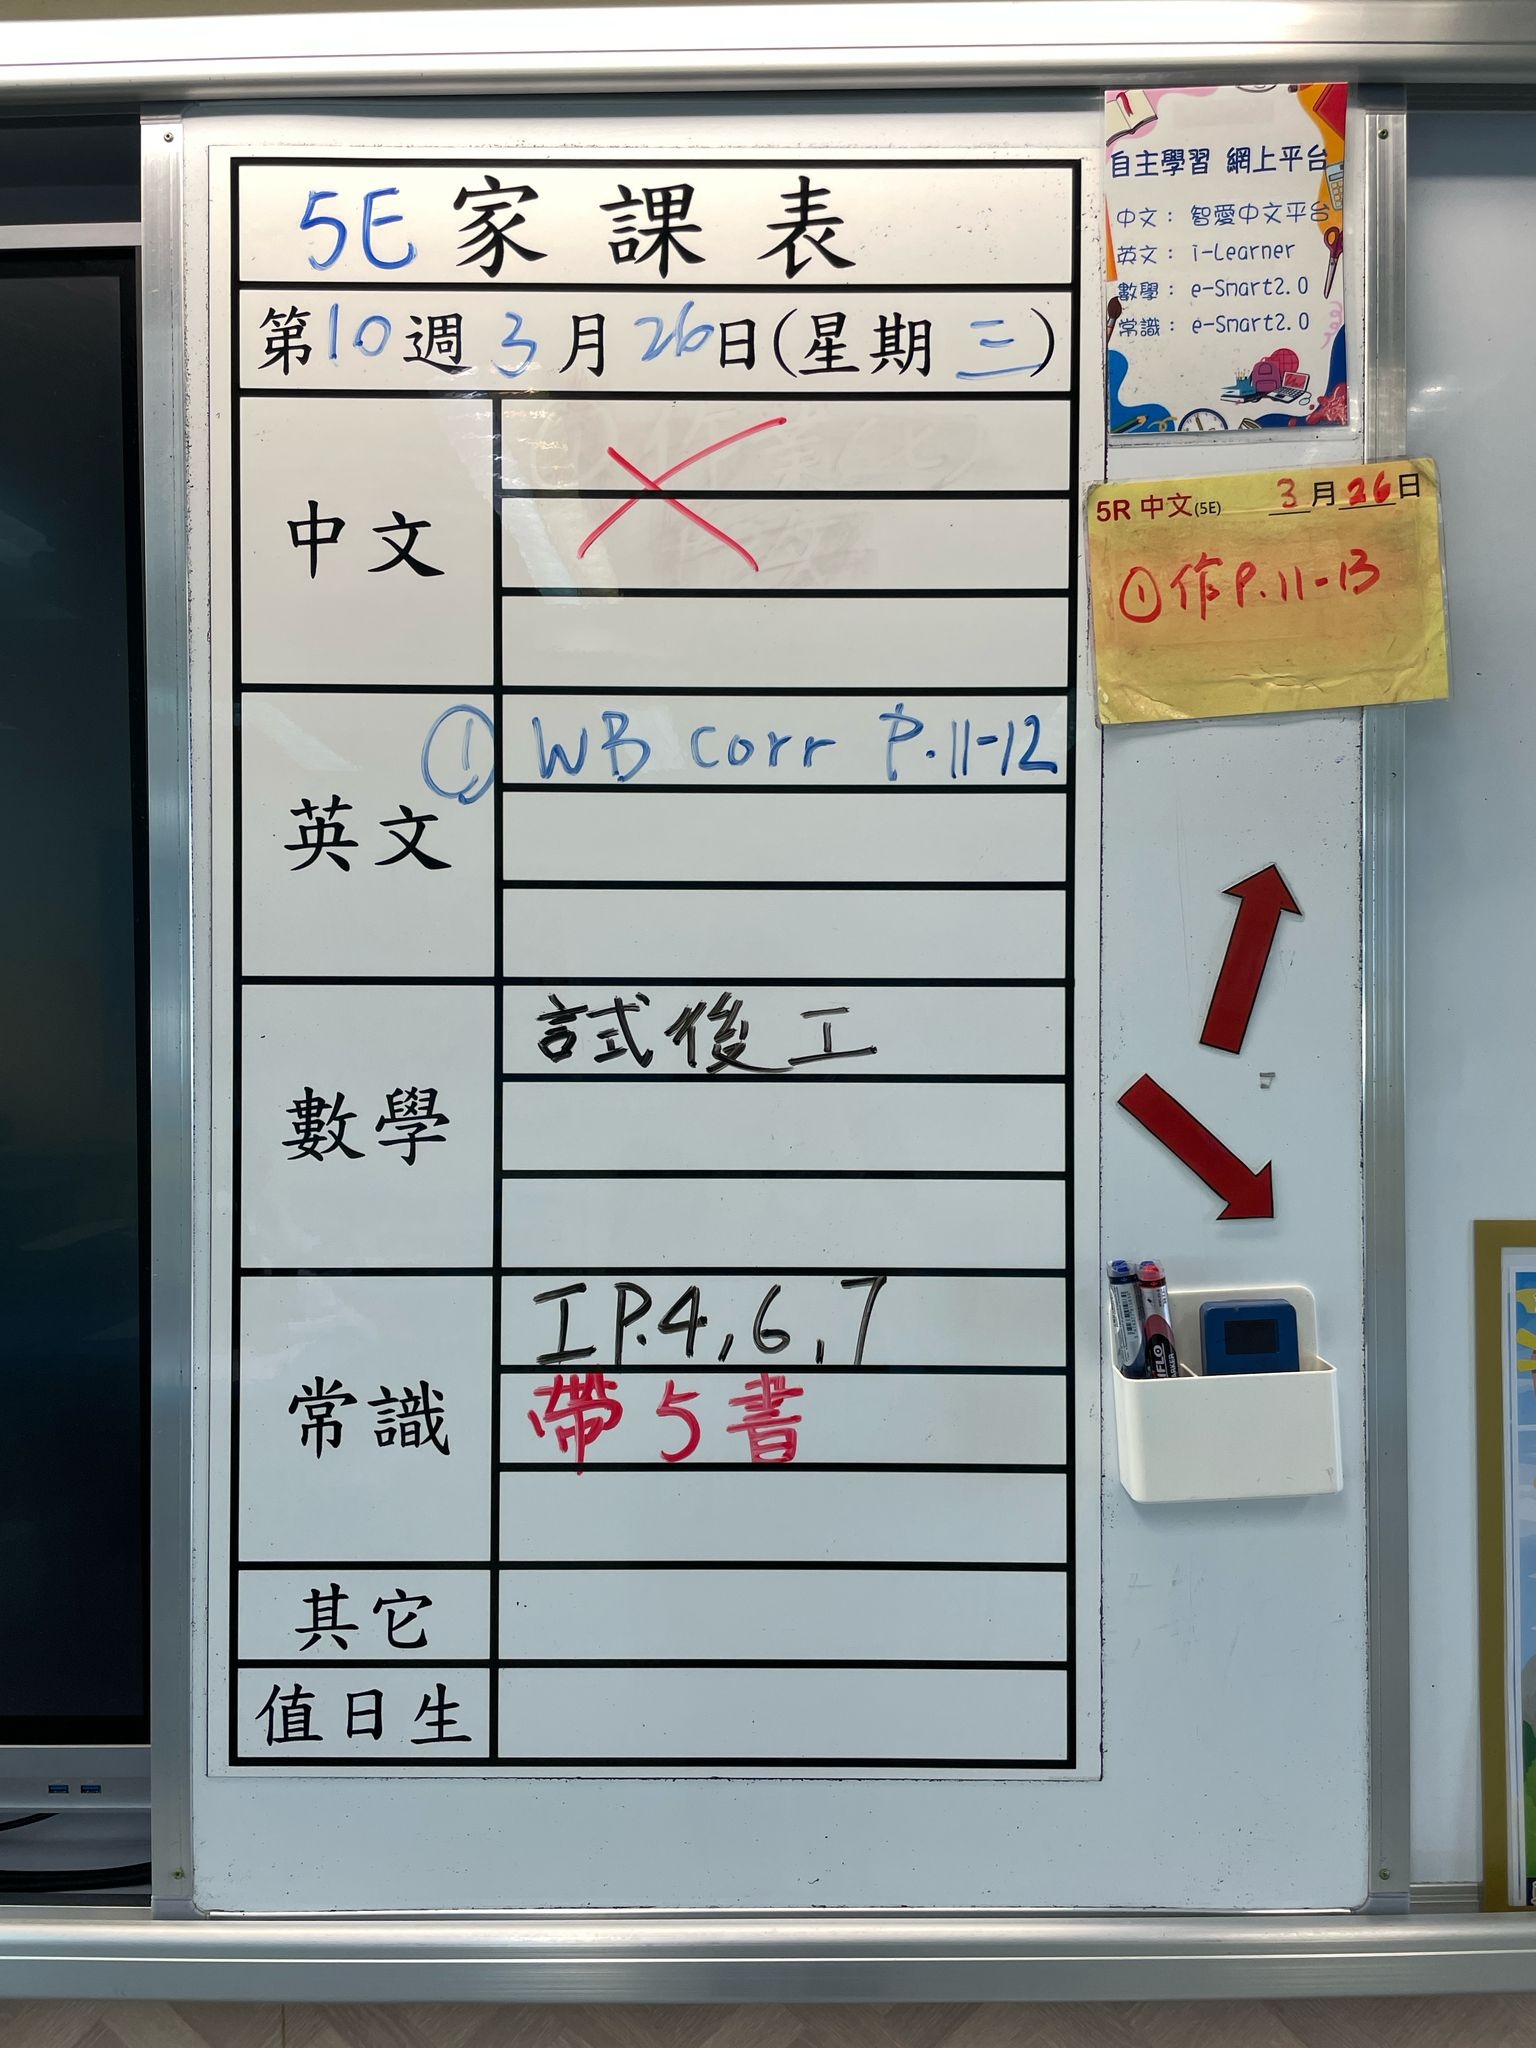 5E 家課表
第10週3月26日(星期三)
中文
英文
① WB corr P.11-12
數學
試後工
常識
工P.4,6,7
帶5書
其它
值日生
自主學習 網上平台
中文： 智愛中文平台
英文： i-Learner
數學： e-Smart2.0
常識： e-Smart2.0
5R 中文(5E) 3月26日
①作P.11-13